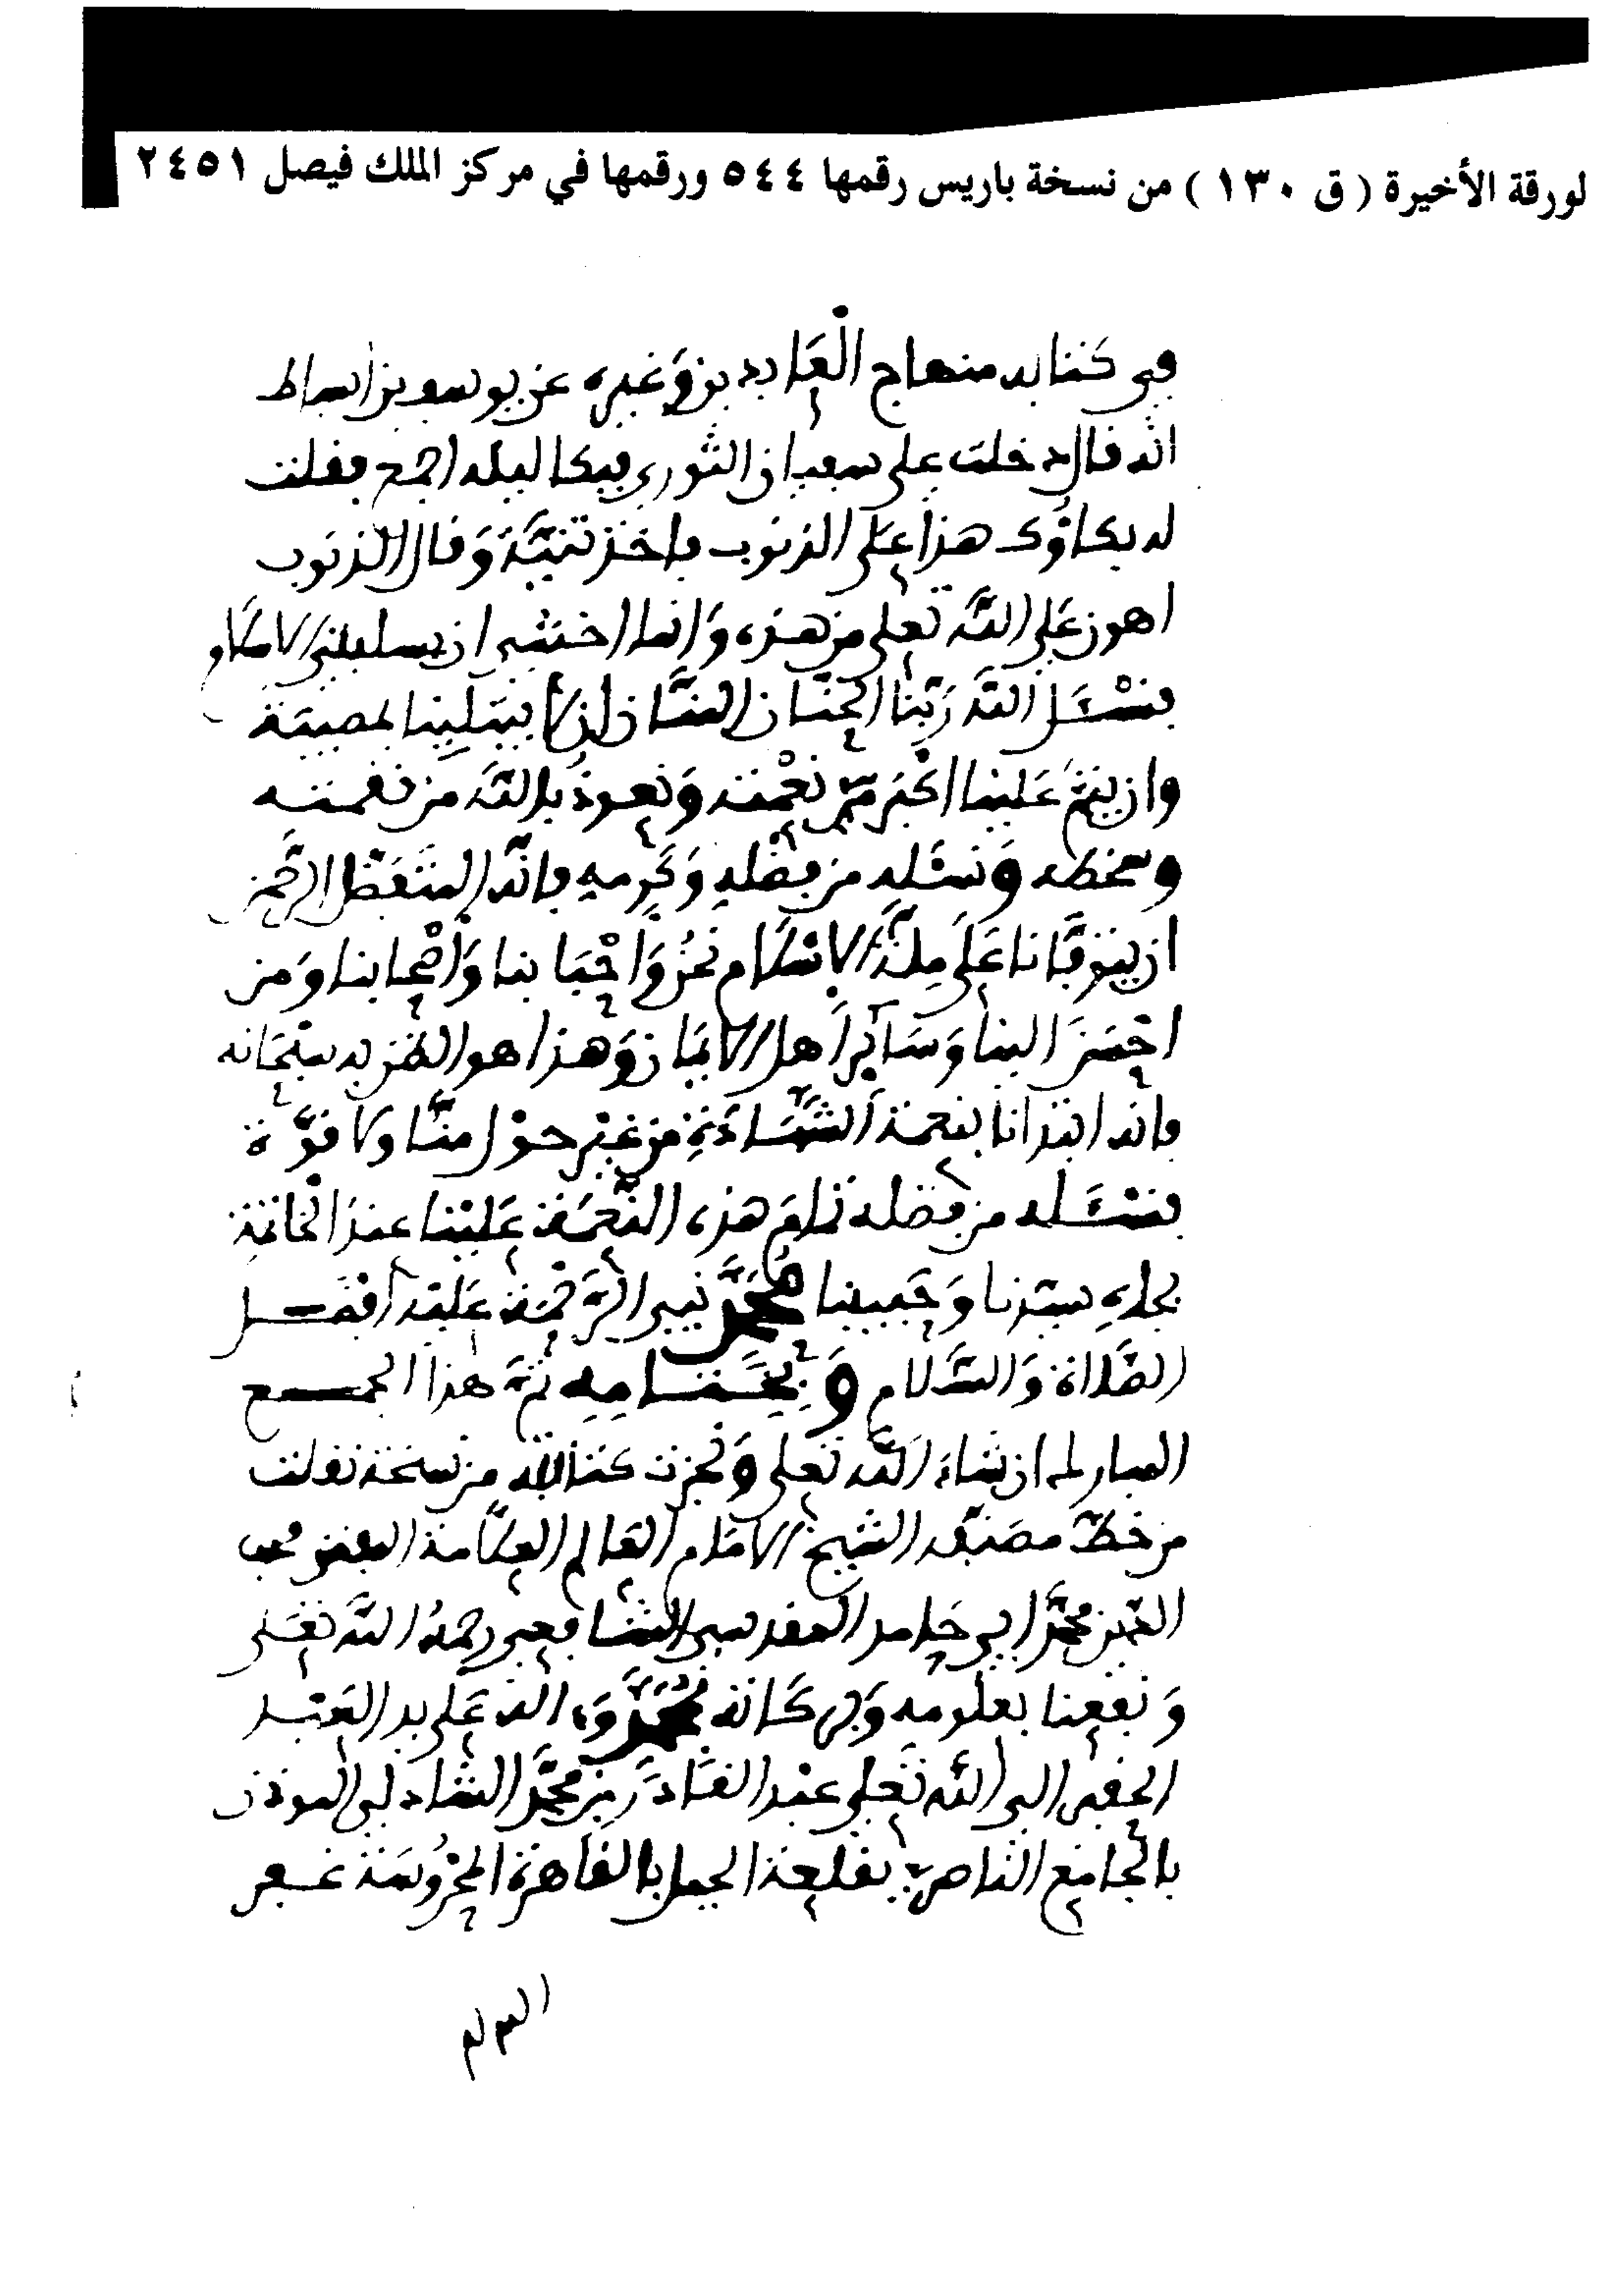 لورقة الأخيرة ( ق ١٣٠ ) من نسخة باريس رقمها ٥٤٤ ورقمها في مركز الملك فيصل ٢٤٥١
في كتابه منهاج الْعَابدين وَغيره عن يوسف بن اسباط
انّه قال دخلت على سفيان الثوري فبكا ليله اجمع فقلت
له بكاؤك هذا عَلى الذنوب فاخذ تبنَةً وَقال الذنوب
اهون عَلى اللّه تعلى من هذه وَانما اخشى ان يسلبني الاسلام
فنسْئَل اللّه رَبّنا الحنّان المنّان ان لا يبتَلينا بمصيبَة
وان يتمّ عَلينا اكبر نعْمته وَنعوذ بالله من نقمته
وسخطه وَنسئله من فضله وَكَرمه فانّه المتفضّل الرّحمن
ان يتوفّانا عَلَى ملّة الاسْلام نحنُ وَاحْبَابنا وَاصْحابنا وَمن
احْسَنَ الينا وَسَآئر اَهل الايمَان وَهذا هو الظن به سبْحَانه
فانه ابتدانا بنعمة الشّهَادَة من غيْر حوْل منّا ولا قوّة
فنسْئَله من فضله تمامَ هذه النّعْمَة عَليْنا عندَ الخاتمَة
بجاهِ سيّدنا وَحَبيبنا مُحَمَّد نبى الرّحْمَة عَليْه اَفضَل
الصَّلاة وَالسَّلام وَبِخِتَامِه تمّ هذا الجمع
المبارك ان شاءَ اللّه تعلى وَنجزت كتابته من نسخة نقلت
من خطّ مصَنّفه الشّيخ الامَام العَالم العلاّمة محب
الدّين محمّد ابي حَامد المقدسي الشافعي رحمَهُ اللّه تعَلى
وَنفعنا بعلومه وَبركَاته بمُحَمَّدٍ وَءاله عَلى يد العَبْد
الحقير الى الله تَعلى عبْد القَادر بن محمَّد الشاذلى الموذن
بالجَامع النّاصرى بقلعة الجبل بالقاهرة المحْرُوسَة غفر